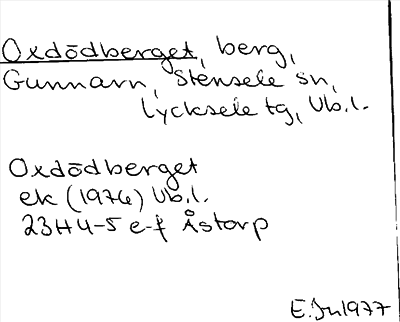 Oxdödberget, berg,
Gunnarn, Stensele sn,
Lycksele tg, Vb.l.
Oxdödberget
ek (1976) Vb.l.
23H 4-5 e-f Åstorp
E. 1977